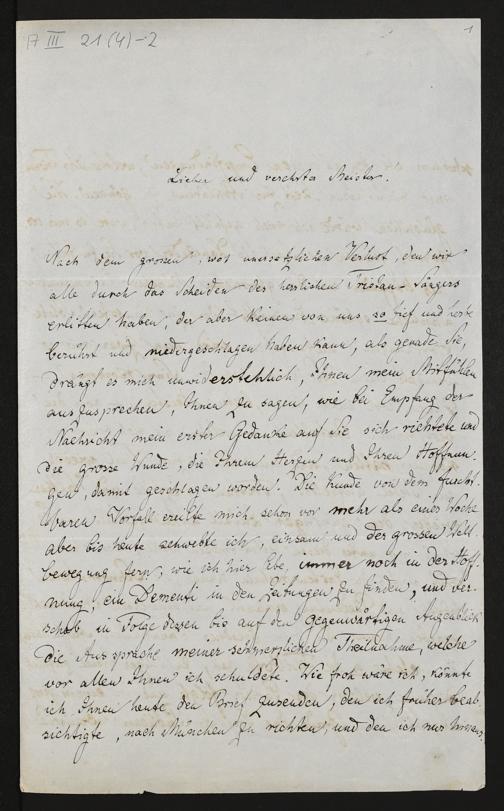 17 III 21(4)-2
1
Lieber und verehrter Meister.
Nach dem grossen, wol unersetzlichen Verlust, den wir
alle durch das Scheiden des herrlichen Tristan-Sängers
erlitten haben, der aber keinen von uns so tief und herbe
berührt und niedergeschlagen haben kann, als gerade Sie,
drängt es mich unwiderstehlich, Ihnen mein Mitfühlen
auszusprechen, Ihnen zu sagen, wie bei Empfang der
Nachricht mein erster Gedanke auf Sie sich richtete und
die grosse Wunde, die Ihrem Herzen und Ihren Hoffnun-
gen, damit geschlagen worden. Die Kunde von dem furcht-
baren Vorfall ereilte mich schon vor mehr als einer Woche
aber bis heute schwebte ich, einsam und der grossen Welt-
bewegung fern, wie ich hier lebe, immer noch in der Hoff-
nung, ein Dementi in den Zeitungen zu finden, und ver-
schob in Folge dessen bis auf den gegenwärtigen Augenblick
die Aussprache meiner schmerzlichen Theilnahme, welche
vor allen Ihnen ich schuldete. Wie froh wäre ich, könnte
ich Ihnen heute den Brief zusenden, den ich früher beab-
sichtigte, nach München zu richten, und den ich nur